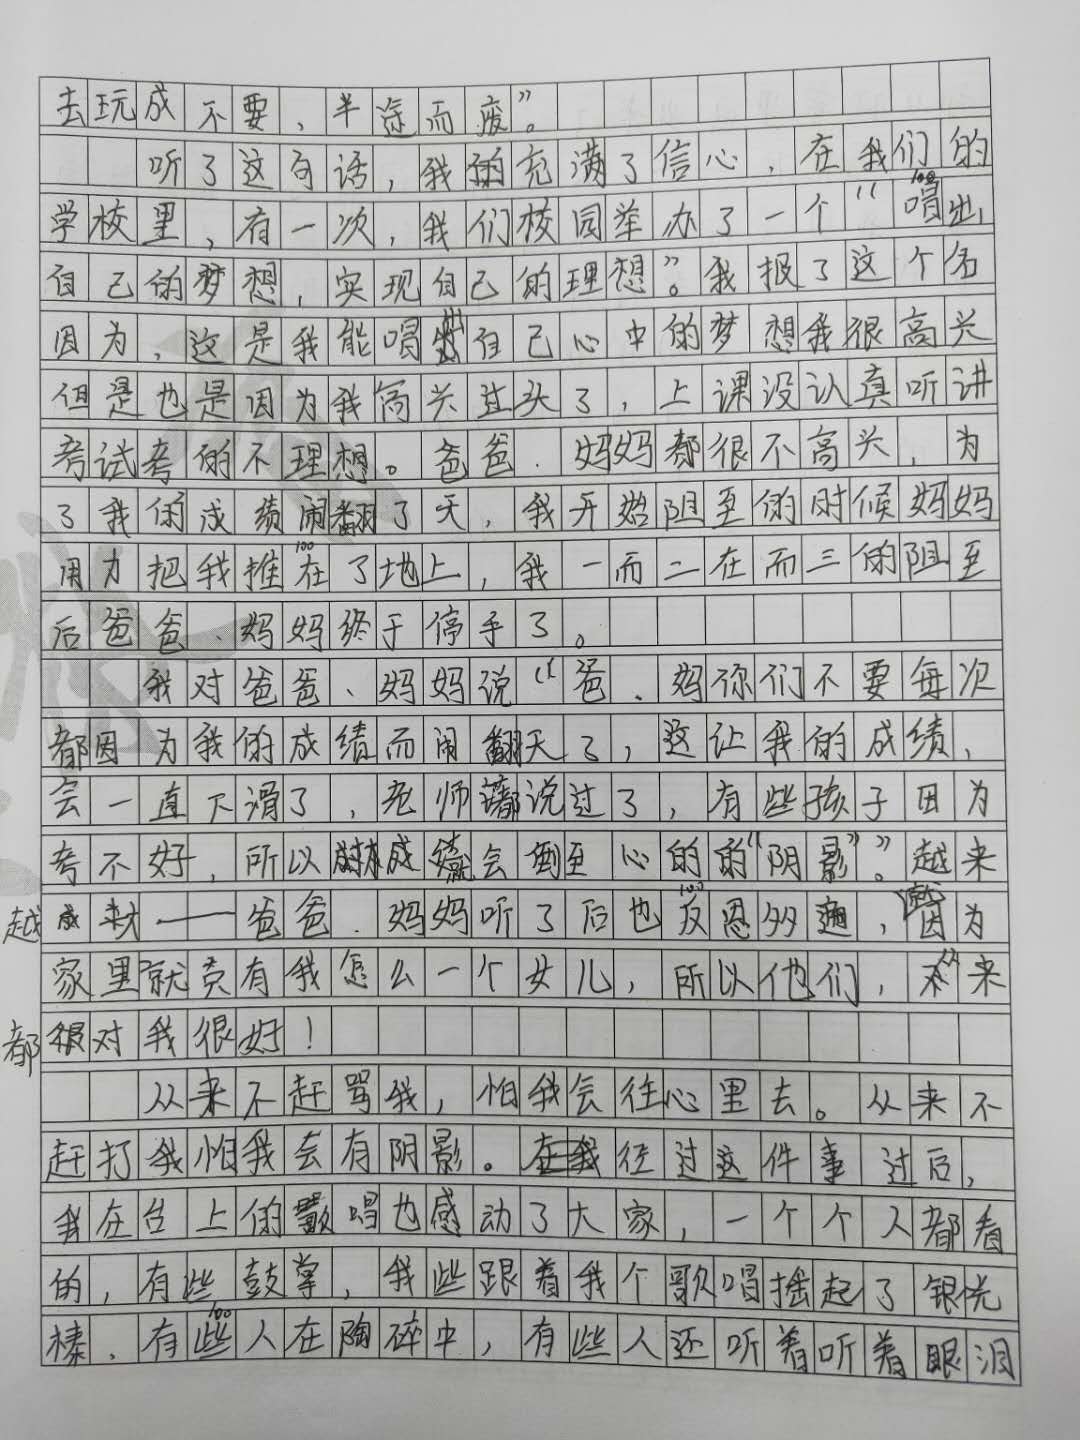 去玩成不要，半途而废”。
听了这句话，我的充满了信心，在我们的
100
学校里，有一次，我们校园举办了一个“唱出
自己的梦想，实现自己的理想”。我报了这个名
因为，这是我能唱出自己心中的梦想我很高兴
但是也是因为我高兴过头了，上课没认真听讲
考试考的不理想。爸爸、妈妈都很不高兴，为
了我的成绩闹翻了天，我开始阻至的时候妈妈
100
用力把我推在了地上，我一而二在而三的阻至
后爸爸、妈妈终于停手了。
我对爸爸、妈妈说“爸、妈你们不要每次
都因为我的成绩而闹翻天了，这让我的成绩，
会一直下滑了，老师都说过了，有些孩子因为
考不好，所以成绩就会倒至心的的“阴影”。”越来
越 ——爸爸、妈妈听了后也反思多遍，就因为
100
家里就竞有我怎么一个女儿，所以他们，从来
都很对我很好！
从来不赶骂我，怕我会往心里去。从来不
赶打我怕我会有阴影。径过这件事过后，
我在台上的歌唱也感动了大家，一个个人都看
的，有些鼓掌，我些跟着我个歌唱摇起了银恍
100
棒、有些人在陶碎中，有些人还听着听着眼泪